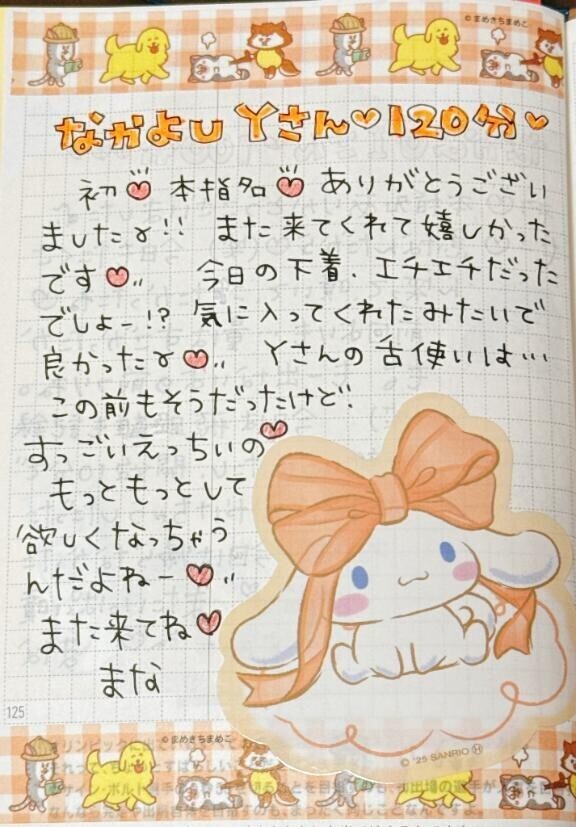 © まめきちまめこ
なかよしYさん♡120分♡
初♡本指名♡ありがとうござい
ましたɤ!! また来てくれて嬉しかった
です♡‥ 今日の下着、エチエチだった
でしょー!? 気に入ってくれたみたいで
良かったɤ♡‥ Yさんの舌使いは…
この前もそうだったけど、
すっごいえっちいの♡
もっともっとして
欲しくなっちゃう
んだよねー♡‥
また来てね♡
まな
125
© まめきちまめこ
© '25 SANRIO Ⓗ